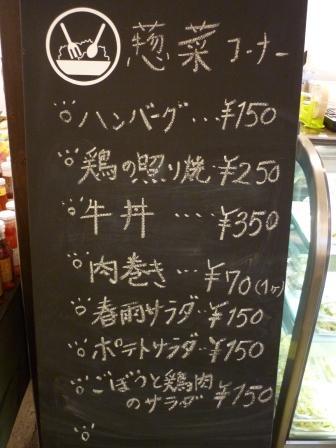 惣菜コーナー
ハンバーグ…¥150
鶏の照り焼 ¥250
牛丼 …¥350
肉巻き …¥70(1ヶ)
春雨サラダ ¥150
ポテトサラダ ¥150
ごぼうと鶏肉
のサラダ ¥150